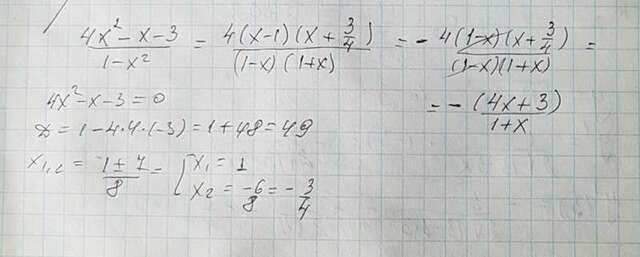 (4x² - x - 3)/(1 - x²) = 4(x-1)(x + 3/4)/((1-x)(1+x)) = - 4(1-x)(x + 3/4)/((1-x)(1+x)) =
= - (4x + 3)/(1+x)
4x² - x - 3 = 0
D = 1 - 4·4·(-3) = 1 + 48 = 49
x₁,₂ = (1 ± 7)/8 = [ x₁ = 1
x₂ = -6/8 = - 3/4